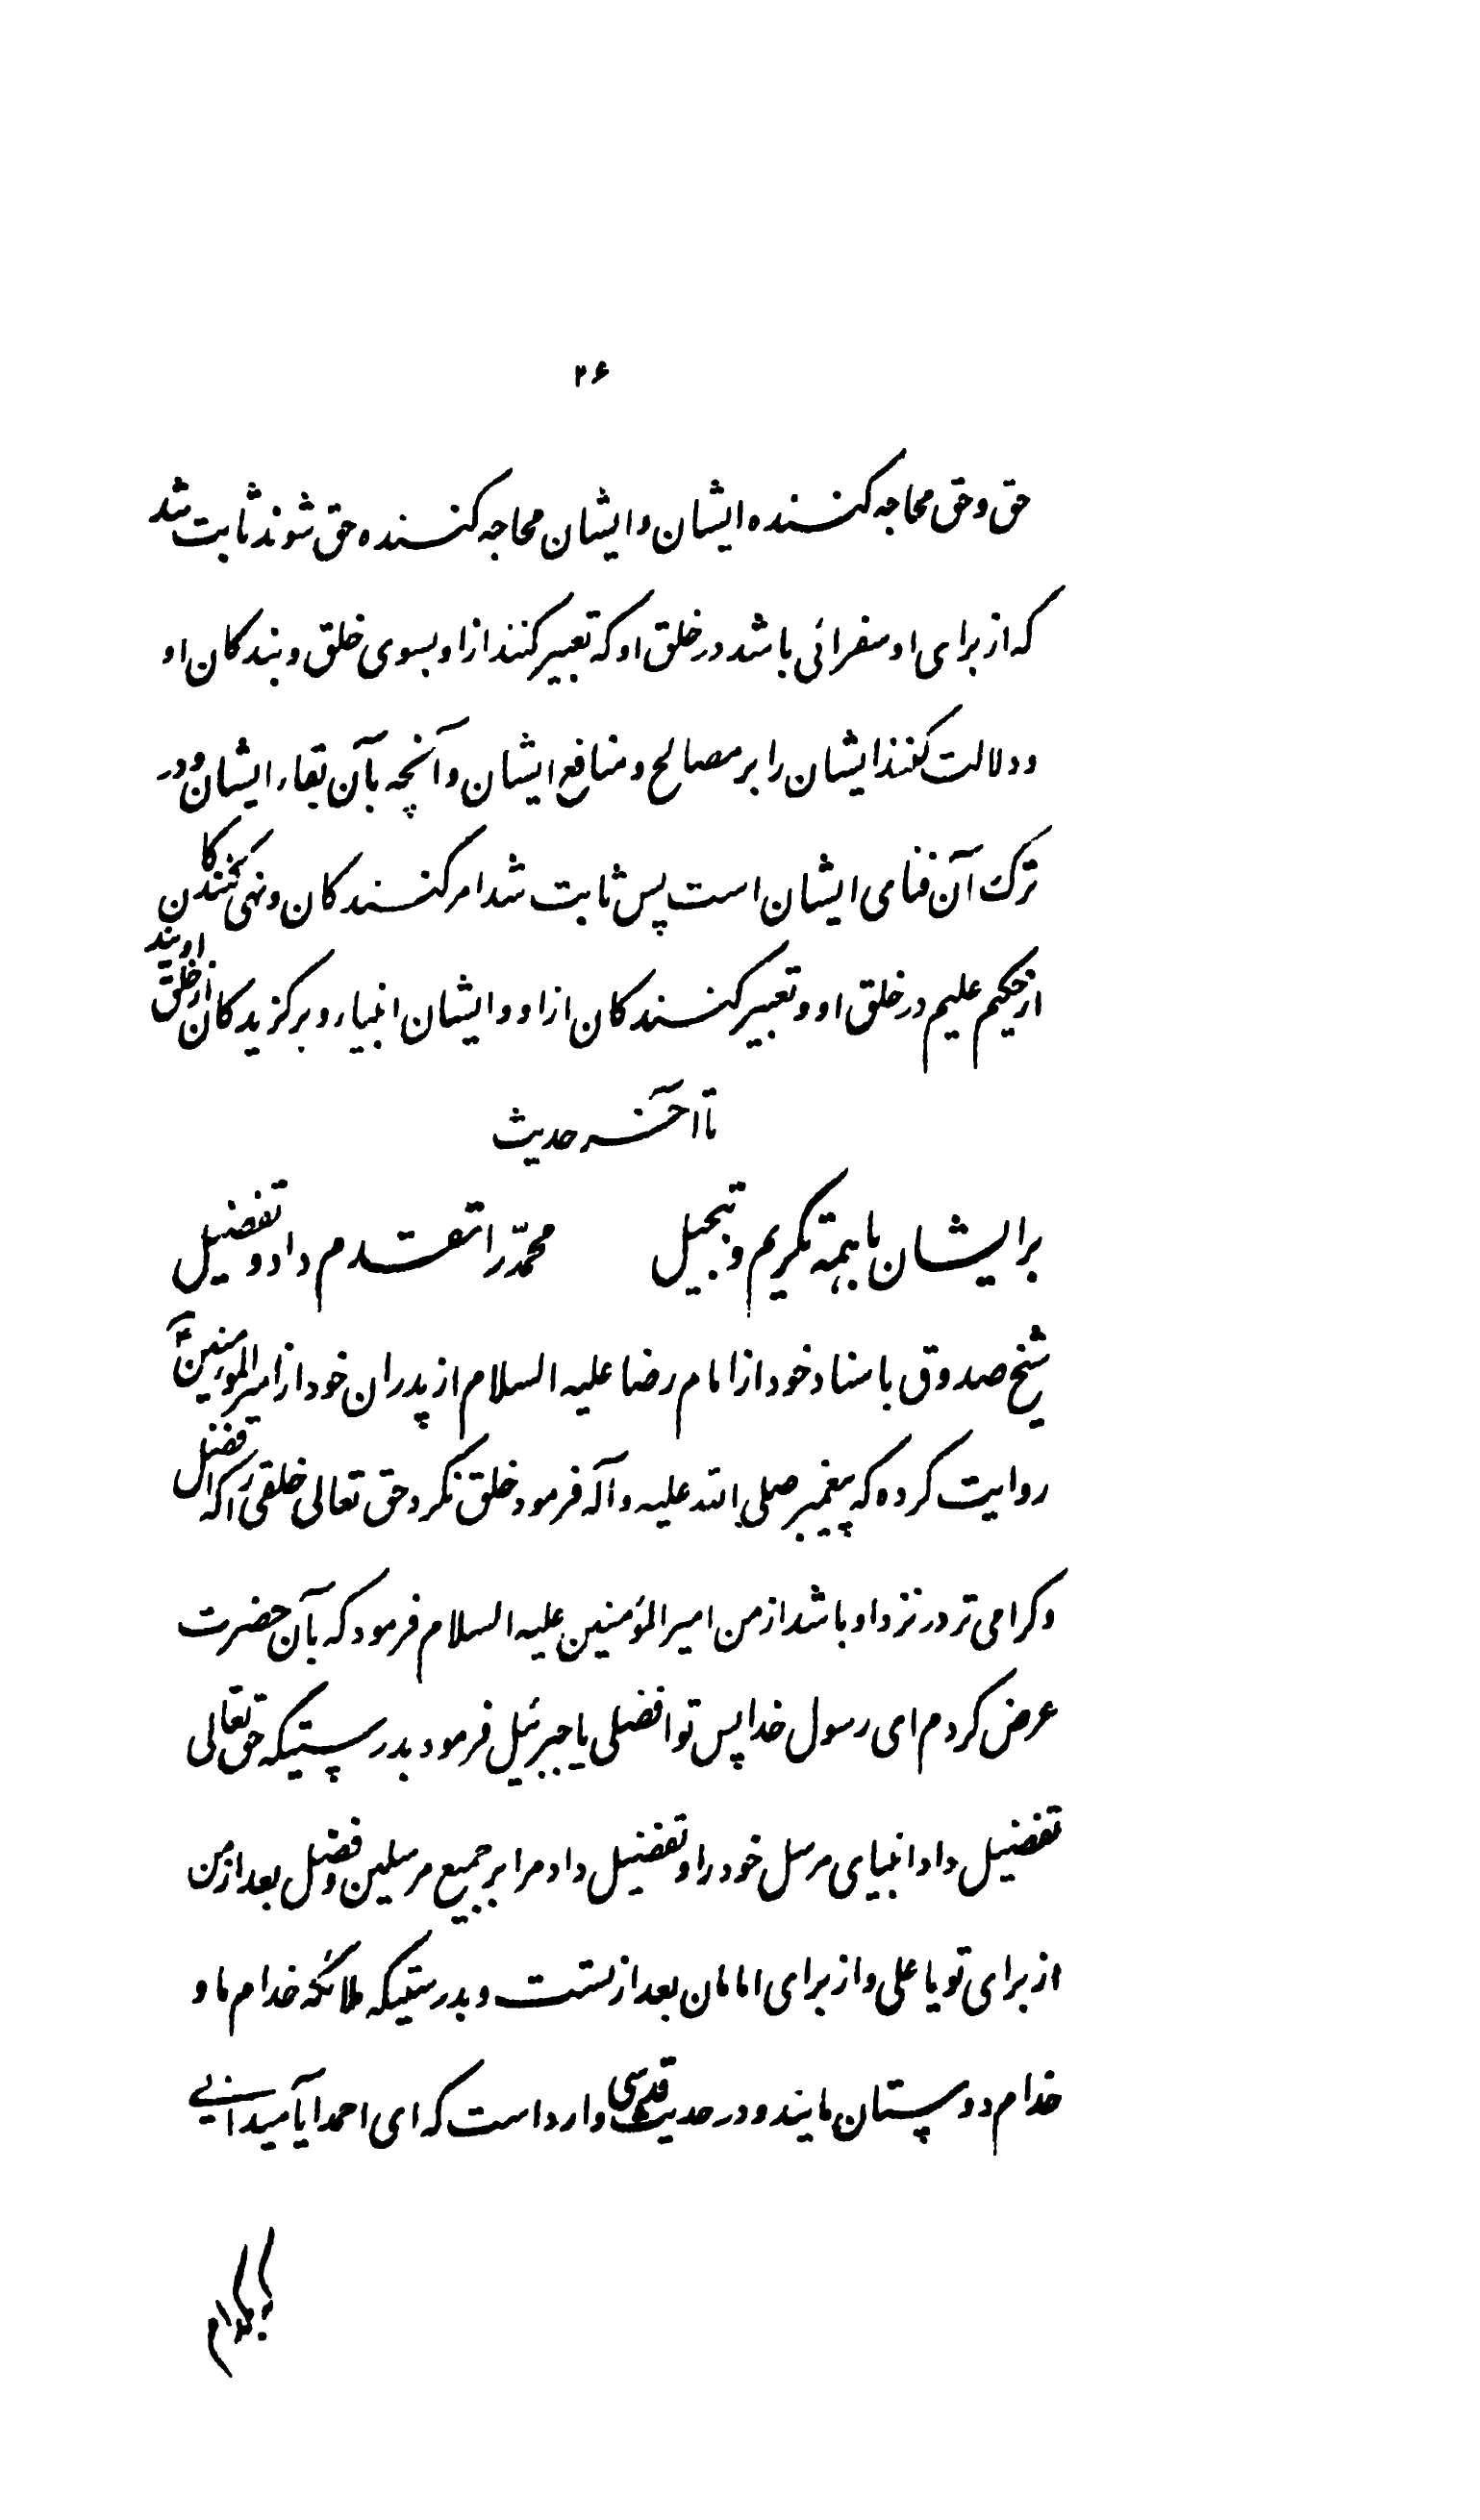 ۲۶
حق و حق محاجه کننده ایشان و ایشان محاجه کننده حق شوند ثابت شد
که از برای او سفرائی باشد در خلق او که تعبیر کنند از او بسوی خلق و بندکان او
و دلالت کنند ایشان را بر مصالح و منافع ایشان و آنچه بآن بقاء ایشان و در
ترک آن فنای ایشان است پس ثابت شد امر کنندکان و نهی کنندکان
از حکیم علیم در خلق او و تعبیر کنندکان از او و ایشان انبیاء و برکزیدکان اویند از خلق
تا آخر حدیث
بر ایشان با همه تکریم و تبجیل محمّد را تقدم داد و تفضیل
شیخ صدوق باسناد خود از امام رضا علیه السلام از پدران خود از امیر المؤمنین ع
روایت کرده که پیغمبر صلی الله علیه و آله فرمود خلق نکرد حق تعالی خلقی را که افضل
و کرامی تر در نزد او باشد از من امیر المؤمنین علیه السلام فرمود که بآن حضرت
عرض کردم ای رسول خدا پس تو افضلی یا جبرئیل فرمود بدرستیکه حق تعالی
تفضیل داد انبیای مرسل خود را و تفضیل داد مرا بر جمیع مرسلین و فضل بعد از من
از برای تو یا علی و از برای امامان بعد از تست و بدرستیکه ملائکه خدام ما و
خدام دوستان مایند و در حدیث قدسی وارد است که ای احمد آیا میدانی